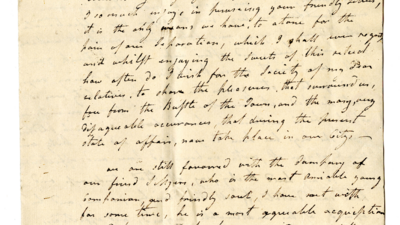 I so much enjoy in perusing your friendly letters,
it is the only means we have, to atone for the
pain of our Separation, which I shall ever regret,
and whilst enjoying the Sweets of this retreat
how often do I wish for the Society of my Dear
relatives, to share the pleasures that surround us,
free from the Bustle of the Town, and the many very
disagreeable occurances that during the present
state of affairs, now take place in our city —
we are still favoured with the Company of
our friend, who is the most amiable young
and friendly soul, I have met with
for some time, he is a most agreeable acquisition